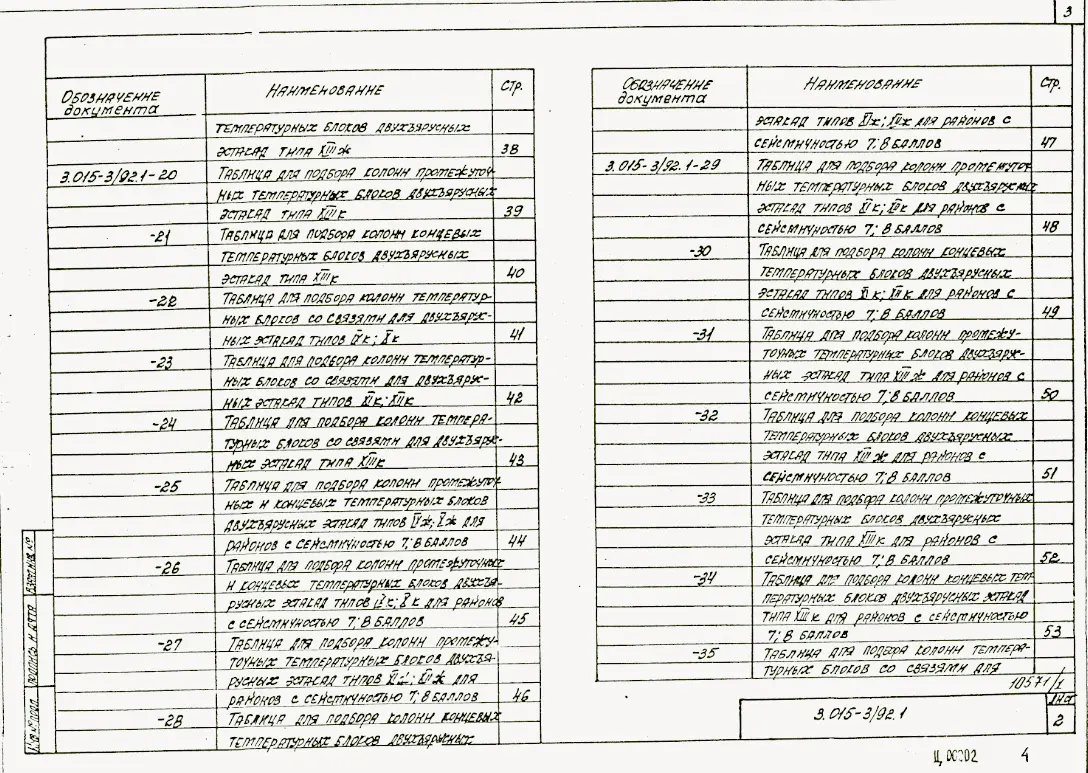 3
Обозначение документа Наименование Стр.
температурных блоков двухъярусных
эстакад типа XIIIж 38
3.015-3/92.1-20 Таблица для подбора колонн промежуточ-
ных температурных блоков двухъярусных
эстакад типа XIIIк 39
-21 Таблица для подбора колонн концевых
температурных блоков двухъярусных
эстакад типа XIIIк 40
-22 Таблица для подбора колонн температур-
ных блоков со связями для двухъярус-
ных эстакад типов IXк; Xк 41
-23 Таблица для подбора колонн температур-
ных блоков со связями для двухъярус-
ных эстакад типов XIк; XIIк 42
-24 Таблица для подбора колонн темпера-
турных блоков со связями для двухъярус-
ных эстакад типа XIIIк 43
-25 Таблица для подбора колонн промежуточ-
ных и концевых температурных блоков
двухъярусных эстакад типов IXж; Xж для
районов с сейсмичностью 7; 8 баллов 44
-26 Таблица для подбора колонн промежуточных
и концевых температурных блоков двухъя-
русных эстакад типов IXк; Xк для районов
с сейсмичностью 7; 8 баллов 45
-27 Таблица для подбора колонн промежу-
точных температурных блоков двухъя-
русных эстакад типов XIж; XIIж для
районов с сейсмичностью 7; 8 баллов 46
-28 Таблица для подбора колонн концевых
температурных блоков двухъярусных
Обозначение документа Наименование Стр.
эстакад типов XIж; XIIж для районов с
сейсмичностью 7; 8 баллов 47
3.015-3/92.1-29 Таблица для подбора колонн промежуточ-
ных температурных блоков двухъярусных
эстакад типов XIк; XIIк для районов с
сейсмичностью 7; 8 баллов 48
-30 Таблица для подбора колонн концевых
температурных блоков двухъярусных
эстакад типов XIк; XIIк для районов с
сейсмичностью 7; 8 баллов 49
-31 Таблица для подбора колонн промежу-
точных температурных блоков двухъярус-
ных эстакад типа XIIIж для районов с
сейсмичностью 7; 8 баллов 50
-32 Таблица для подбора колонн концевых
температурных блоков двухъярусных
эстакад типа XIIIж для районов с
сейсмичностью 7; 8 баллов 51
-33 Таблица для подбора колонн промежуточных
температурных блоков двухъярусных
эстакад типа XIIIк для районов с
сейсмичностью 7; 8 баллов 52
-34 Таблица для подбора колонн концевых тем-
пературных блоков двухъярусных эстакад
типа XIIIк для районов с сейсмичностью
7; 8 баллов 53
-35 Таблица для подбора колонн темпера-
турных блоков со связями для
10571/1
3.015-3/92.1
Лист
2
Инв.№ подл. Подпись и дата Взам.инв.№
Ц00202 4